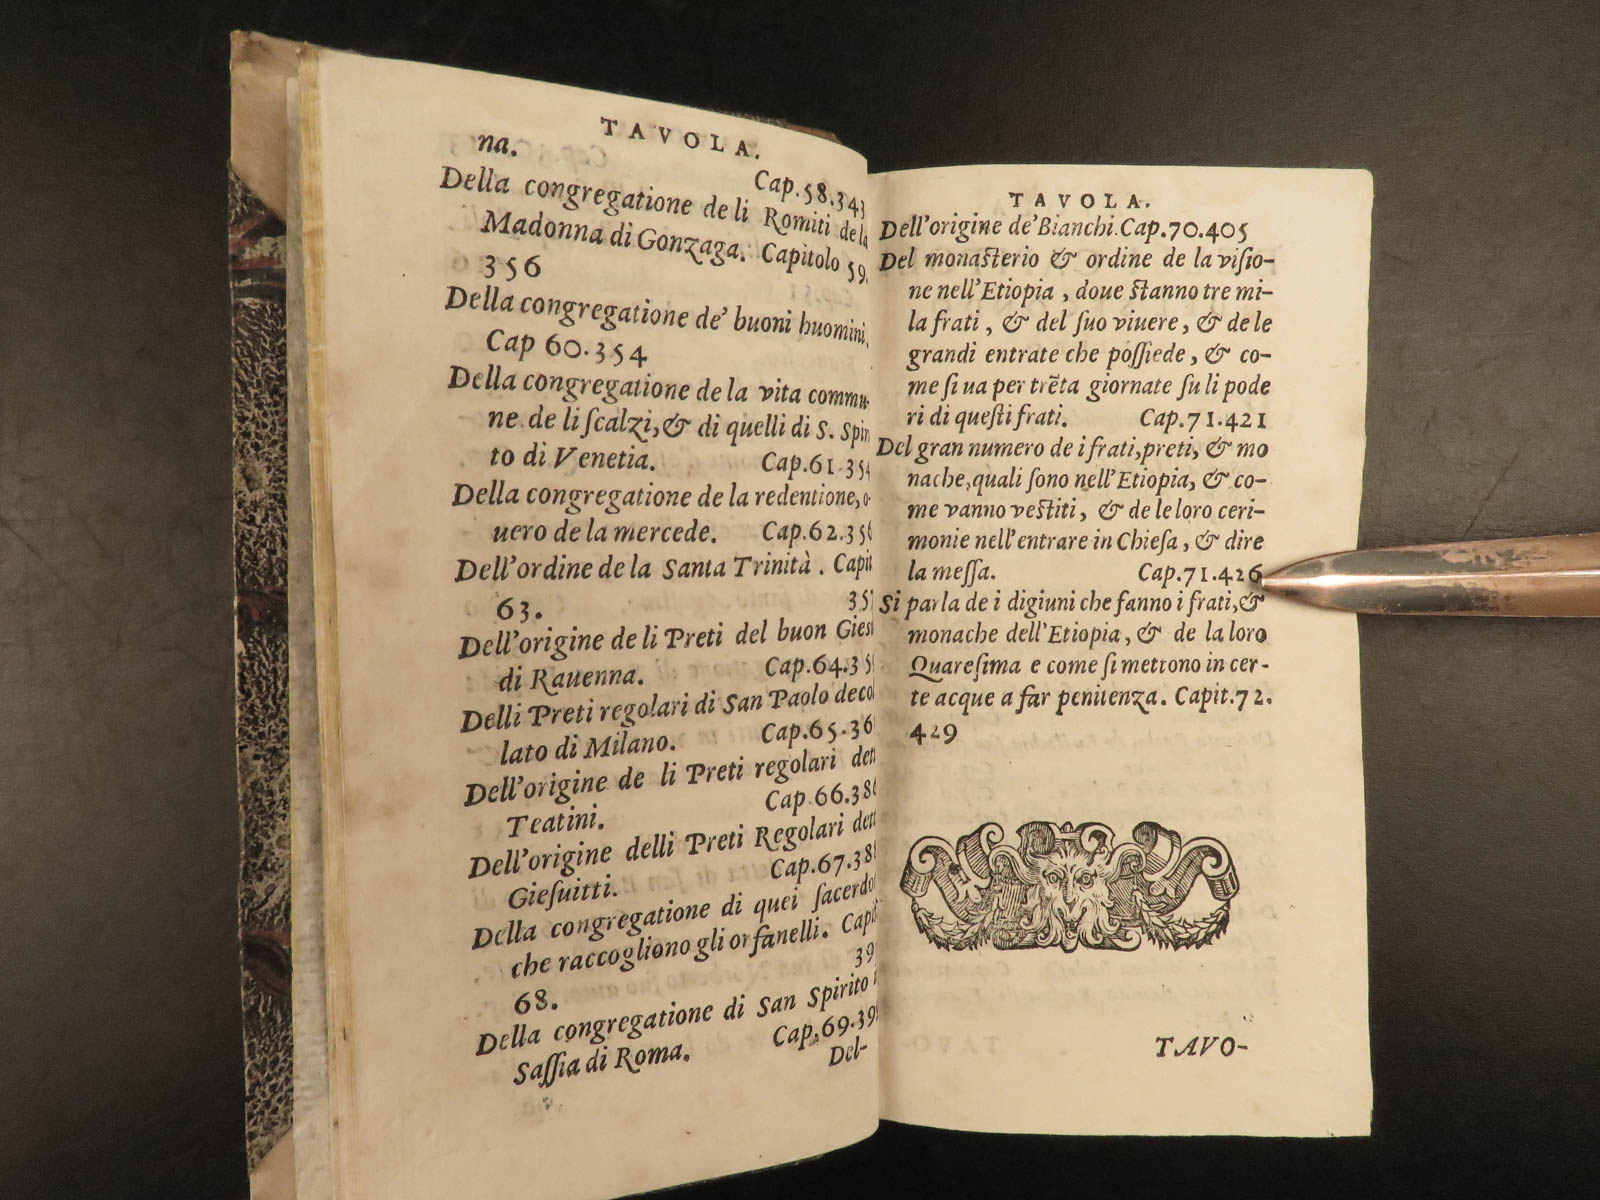 TAVOLA.
na.
Cap.58.343
Della congregatione de li Romiti de la
Madonna di Gonzaga. Capitolo 59.
356
Della congregatione de' buoni huomini.
Cap 60.354
Della congregatione de la vita commu-
ne de li ſcalzi, & di quelli di S. Spiri
to di Venetia. Cap.61.354
Della congregatione de la redentione, o-
uero de la mercede. Cap.62.356
Dell'ordine de la Santa Trinità. Capit
63. 357
Dell'origine de li Preti del buon Giesu
di Rauenna. Cap.64.35
Delli Preti regolari di San Paolo decol
lato di Milano. Cap.65.36
Dell'origine de li Preti regolari dett
Teatini. Cap.66.386
Dell'origine delli Preti Regolari dett
Gieſuitti. Cap.67.38
Della congregatione di quei ſacerdo
che raccogliono gli orfanelli. Capit
68. 39
Della congregatione di San Spirito
Saſſia di Roma. Cap.69.39
Del-
TAVOLA.
Dell'origine de' Bianchi. Cap.70.405
Del monaſterio & ordine de la viſio-
ne nell'Etiopia, doue ſtanno tre mi-
la frati, & del ſuo viuere, & de le
grandi entrate che poſſiede, & co-
me ſi ua per trẽta giornate ſu li pode
ri di queſti frati. Cap.71.421
Del gran numero de i frati, preti, & mo
nache, quali ſono nell'Etiopia, & co-
me vanno veſtiti, & de le loro ceri-
monie nell'entrare in Chieſa, & dire
la meſſa. Cap.71.426
Si parla de i digiuni che fanno i frati, &
monache dell'Etiopia, & de la loro
Quareſima e come ſi mettono in cer-
te acque a far penitenza. Capit.72.
429
TAVO-